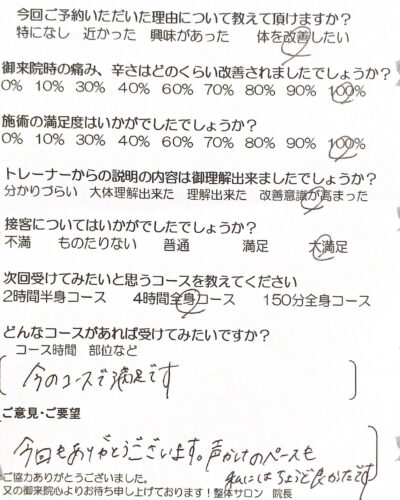 今回ご予約いただいた理由について教えて頂けますか?
特になし 近かった 興味があった 体を改善したい
御来院時の痛み、辛さはどのくらい改善されましたでしょうか?
0% 10% 30% 40% 60% 70% 80% 90% 100%
施術の満足度はいかがでしたでしょうか?
0% 10% 30% 40% 60% 70% 80% 90% 100%
トレーナーからの説明の内容は御理解出来ましたでしょうか?
分かりづらい 大体理解出来た 理解出来た 改善意識が高まった
接客についてはいかがでしたでしょうか?
不満 ものたりない 普通 満足 大満足
次回受けてみたいと思うコースを教えてください
2時間半身コース 4時間全身コース 150分全身コース
どんなコースがあれば受けてみたいですか?
コース時間 部位など
今のコースで満足です
ご意見・ご要望
今回もありがとうございます。声かけのペースも
私にはちょうど良かったです
ご協力ありがとうございました。
又の御来院心よりお待ち申し上げております!整体サロン 院長